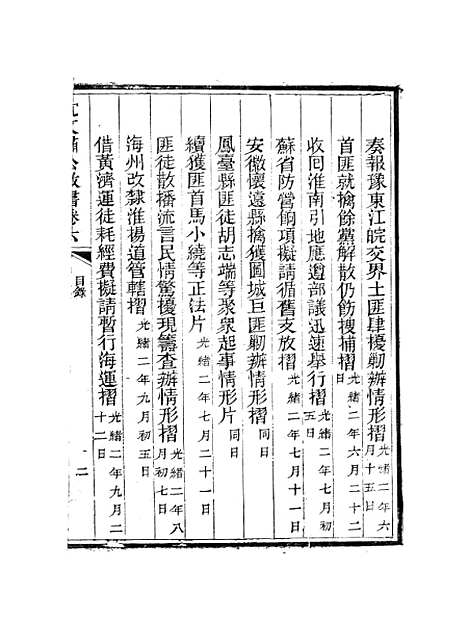 奏報豫東江皖交界土匪肆擾剿辦情形摺光緒二年六月十五日
首匪就擒餘黨解散仍飭搜捕摺光緒二年六月二十二日
收回淮南引地應遵部議迅速舉行摺光緒二年七月初五日
蘇省防營餉項擬請循舊支放摺光緒二年七月十一日
安徽懷遠縣擒獲圖城巨匪剿辦情形摺同日
鳳臺縣匪徒胡志端等聚衆起事情形片同日
續獲匪首馬小繞等正法片光緒二年七月二十一日
匪徒散播流言民情驚擾現籌查辦情形摺光緒二年八月初七日
海州改隸淮揚道管轄摺光緒二年九月初五日
借黃濟運徒耗經費擬請暫行海運摺光緒二年九月二十二日
文肅公政書卷六 目錄 二